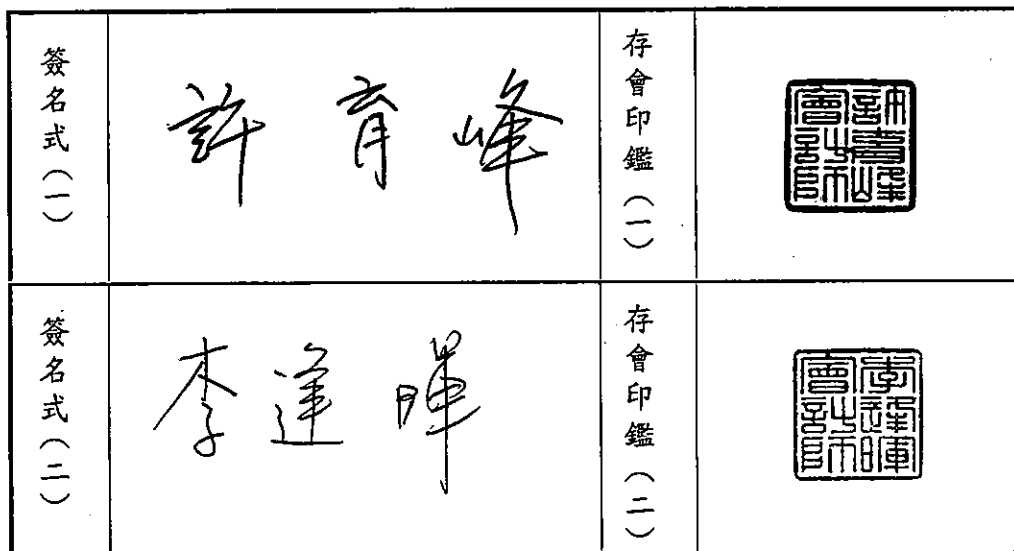 簽名式(一)
許育峰
存會印鑑(一)
許育峰
會計師
簽名式(二)
李逢暉
存會印鑑(二)
李逢暉
會計師